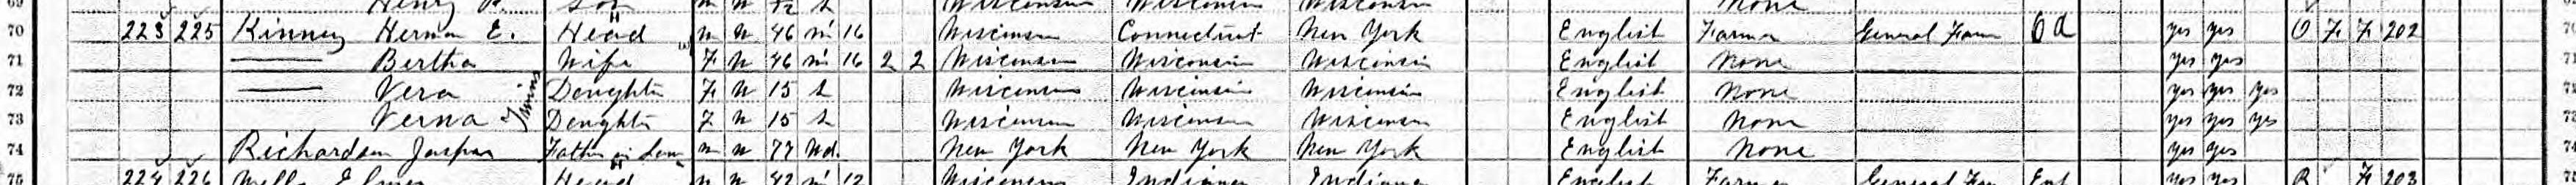 69 Henry R. Son m W S Wisconsin Wisconsin Wisconsin None
70 223 225 Kinney Herman E. Head m W 46 m1 16 Wisconsin Connecticut New York English Farmer General Farm OA yes yes O F F 202 70
71 —— Bertha Wife F W 46 m1 16 2 2 Wisconsin Wisconsin Wisconsin English None yes yes 71
72 —— Vera Twins Daughter F W 15 S Wisconsin Wisconsin Wisconsin English None yes yes yes 72
73 Verna Daughter F W 15 S Wisconsin Wisconsin Wisconsin English None yes yes yes 73
74 Richardson Jasper Father in Law m W 77 Wd. New York New York New York English None yes yes 74
75 224 226 Elmer Head m W 42 m1 12 Wisconsin Indiana Indiana English Farmer General Farm Emp yes yes R F 203